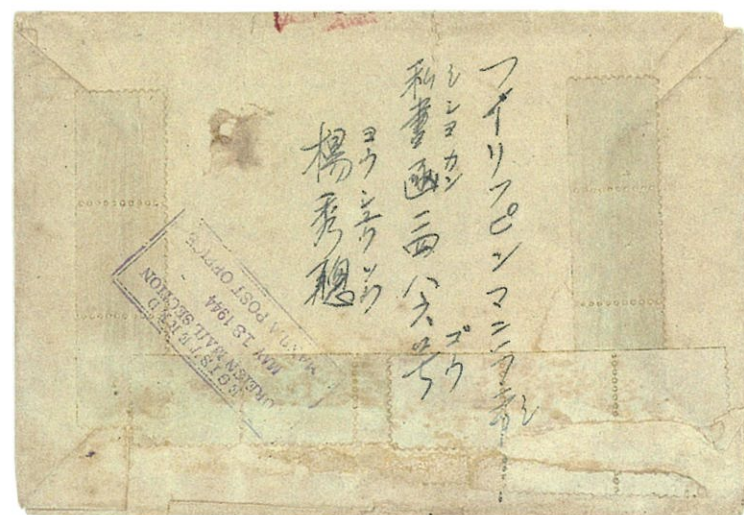 フイリツピンマニラ市
シ
シンヨカン
私書函二四八六号
ゴウ
ヨウシユウソウ
楊秀聰
REGISTERED
FOREIGN MAIL SECTION
MAY 18 1944
MANILA POST OFFICE